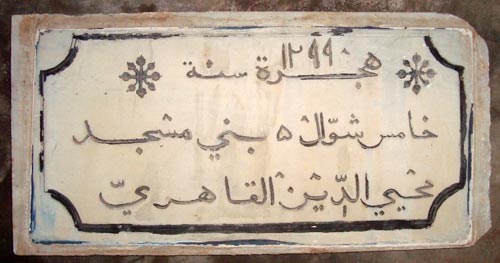 هجرة سنة ١٢٩٩
خامس شوّال ۵ بني مشجد
محيي الدّين القاهريّ